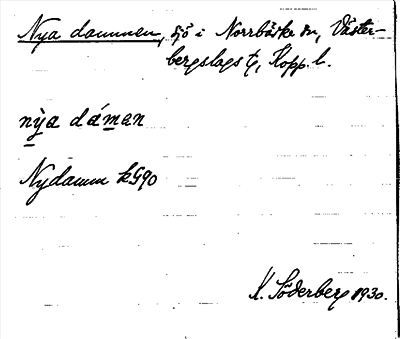 Nya dammen, sjö i Norrbärke sn, Väster-
bergslags tg, Kopp. l.
nỳa dáman
Nydamm kG90
K. Söderberg 1930.